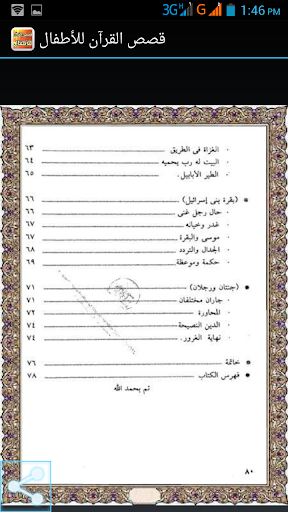 3G H G 1:46 PM
قصص القرآن للأطفال
· الغزاة فى الطريق ٦٣
· البيت له رب يحميه ٦٤
· الطير الأبابيل. ٦٥
● (بقرة بنى إسرائيل) ٦٦
· حال رجل غنى ٦٦
· غدر وخيانه ٦٧
· موسى والبقرة ٦٧
· الجدال والتردد ٦٨
· حكمة وموعظة ٦٩
● (جنتان ورجلان) ٧١
· جاران مختلفان ٧١
· المحاورة ٧٢
· الدين النصيحة ٧٤
· نهاية الغرور. ٧٤
● خاتمة ٧٦
● فهرس الكتاب ٧٨
تم بحمد الله
٨٠